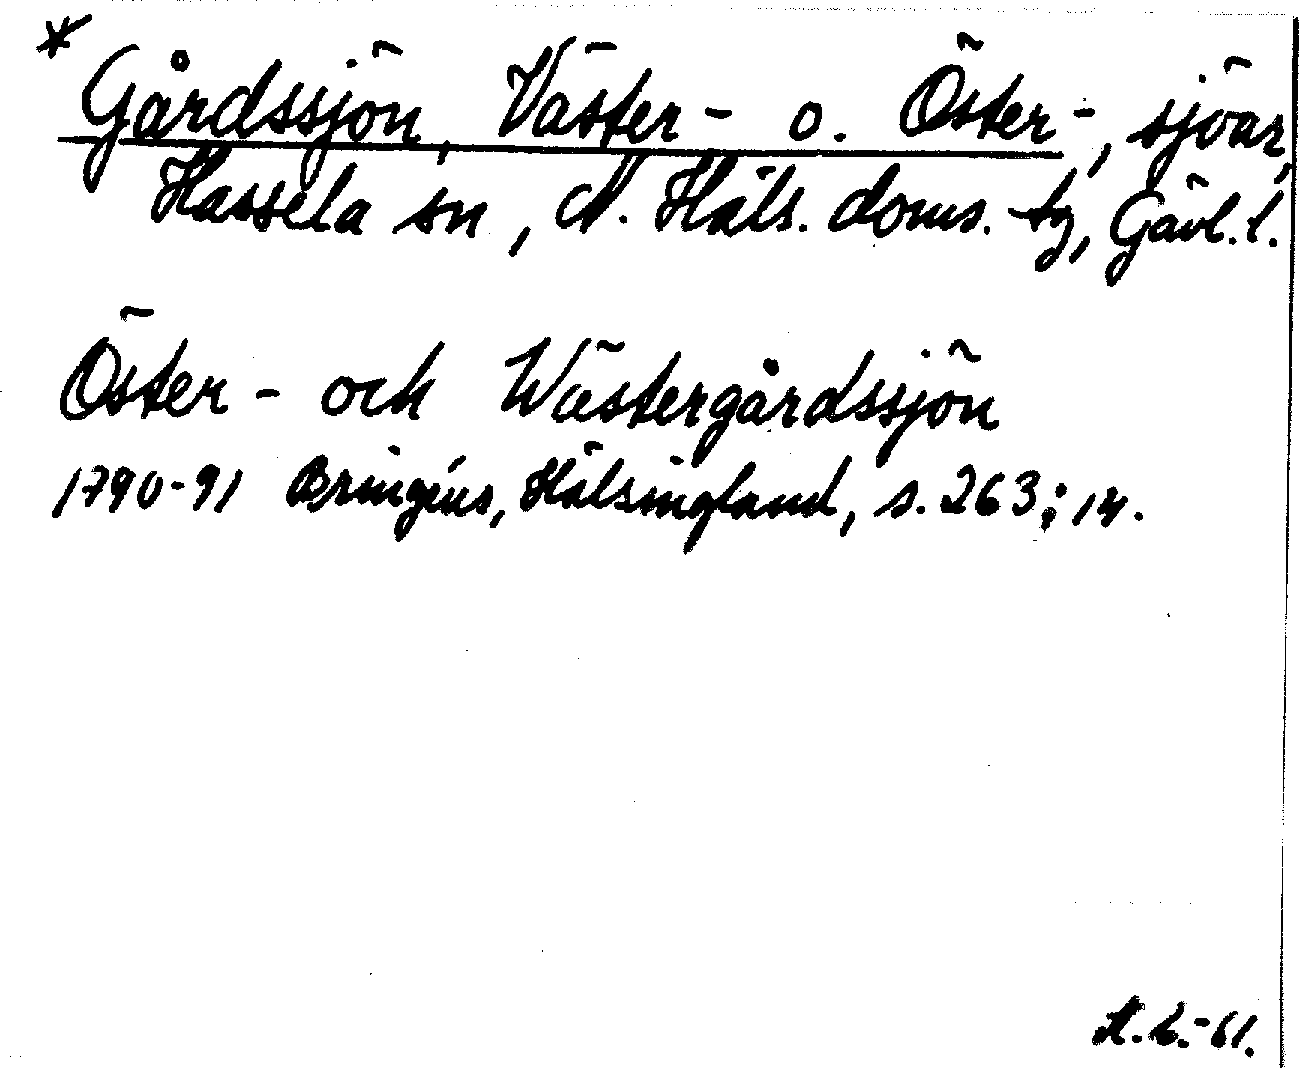 * Gårdssjön, Väster- o. Öster-, sjöar,
Hassela sn, N. Häls. doms. tg, Gävl. l.
Öster- och Wästergårdssjön
1790-91 Bringéus, Hälsingland, s. 263; 14.
A. L.-61.